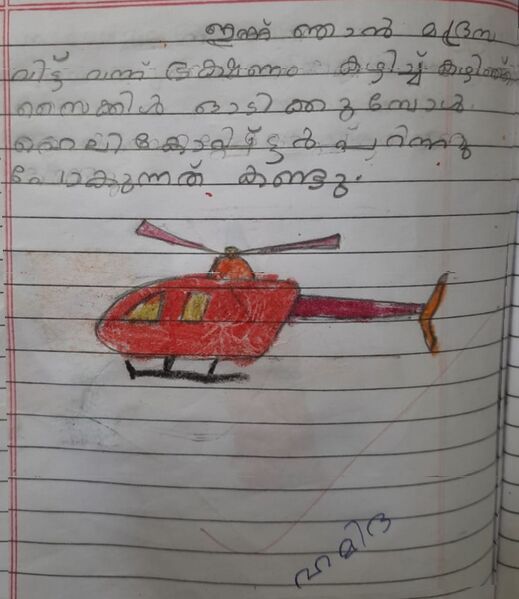 ഇന്ന് ഞാൻ മദ്രസ
വിട്ട് വന്ന് ഭക്ഷണം കഴിച്ച് കഴിഞ്ഞ്
സൈക്കിൾ ഓടിക്കുമ്പോൾ
ഹെലികോപ്ട്ടർ പറന്നു
പോകുന്നത് കണ്ടു.
ഹമിദ